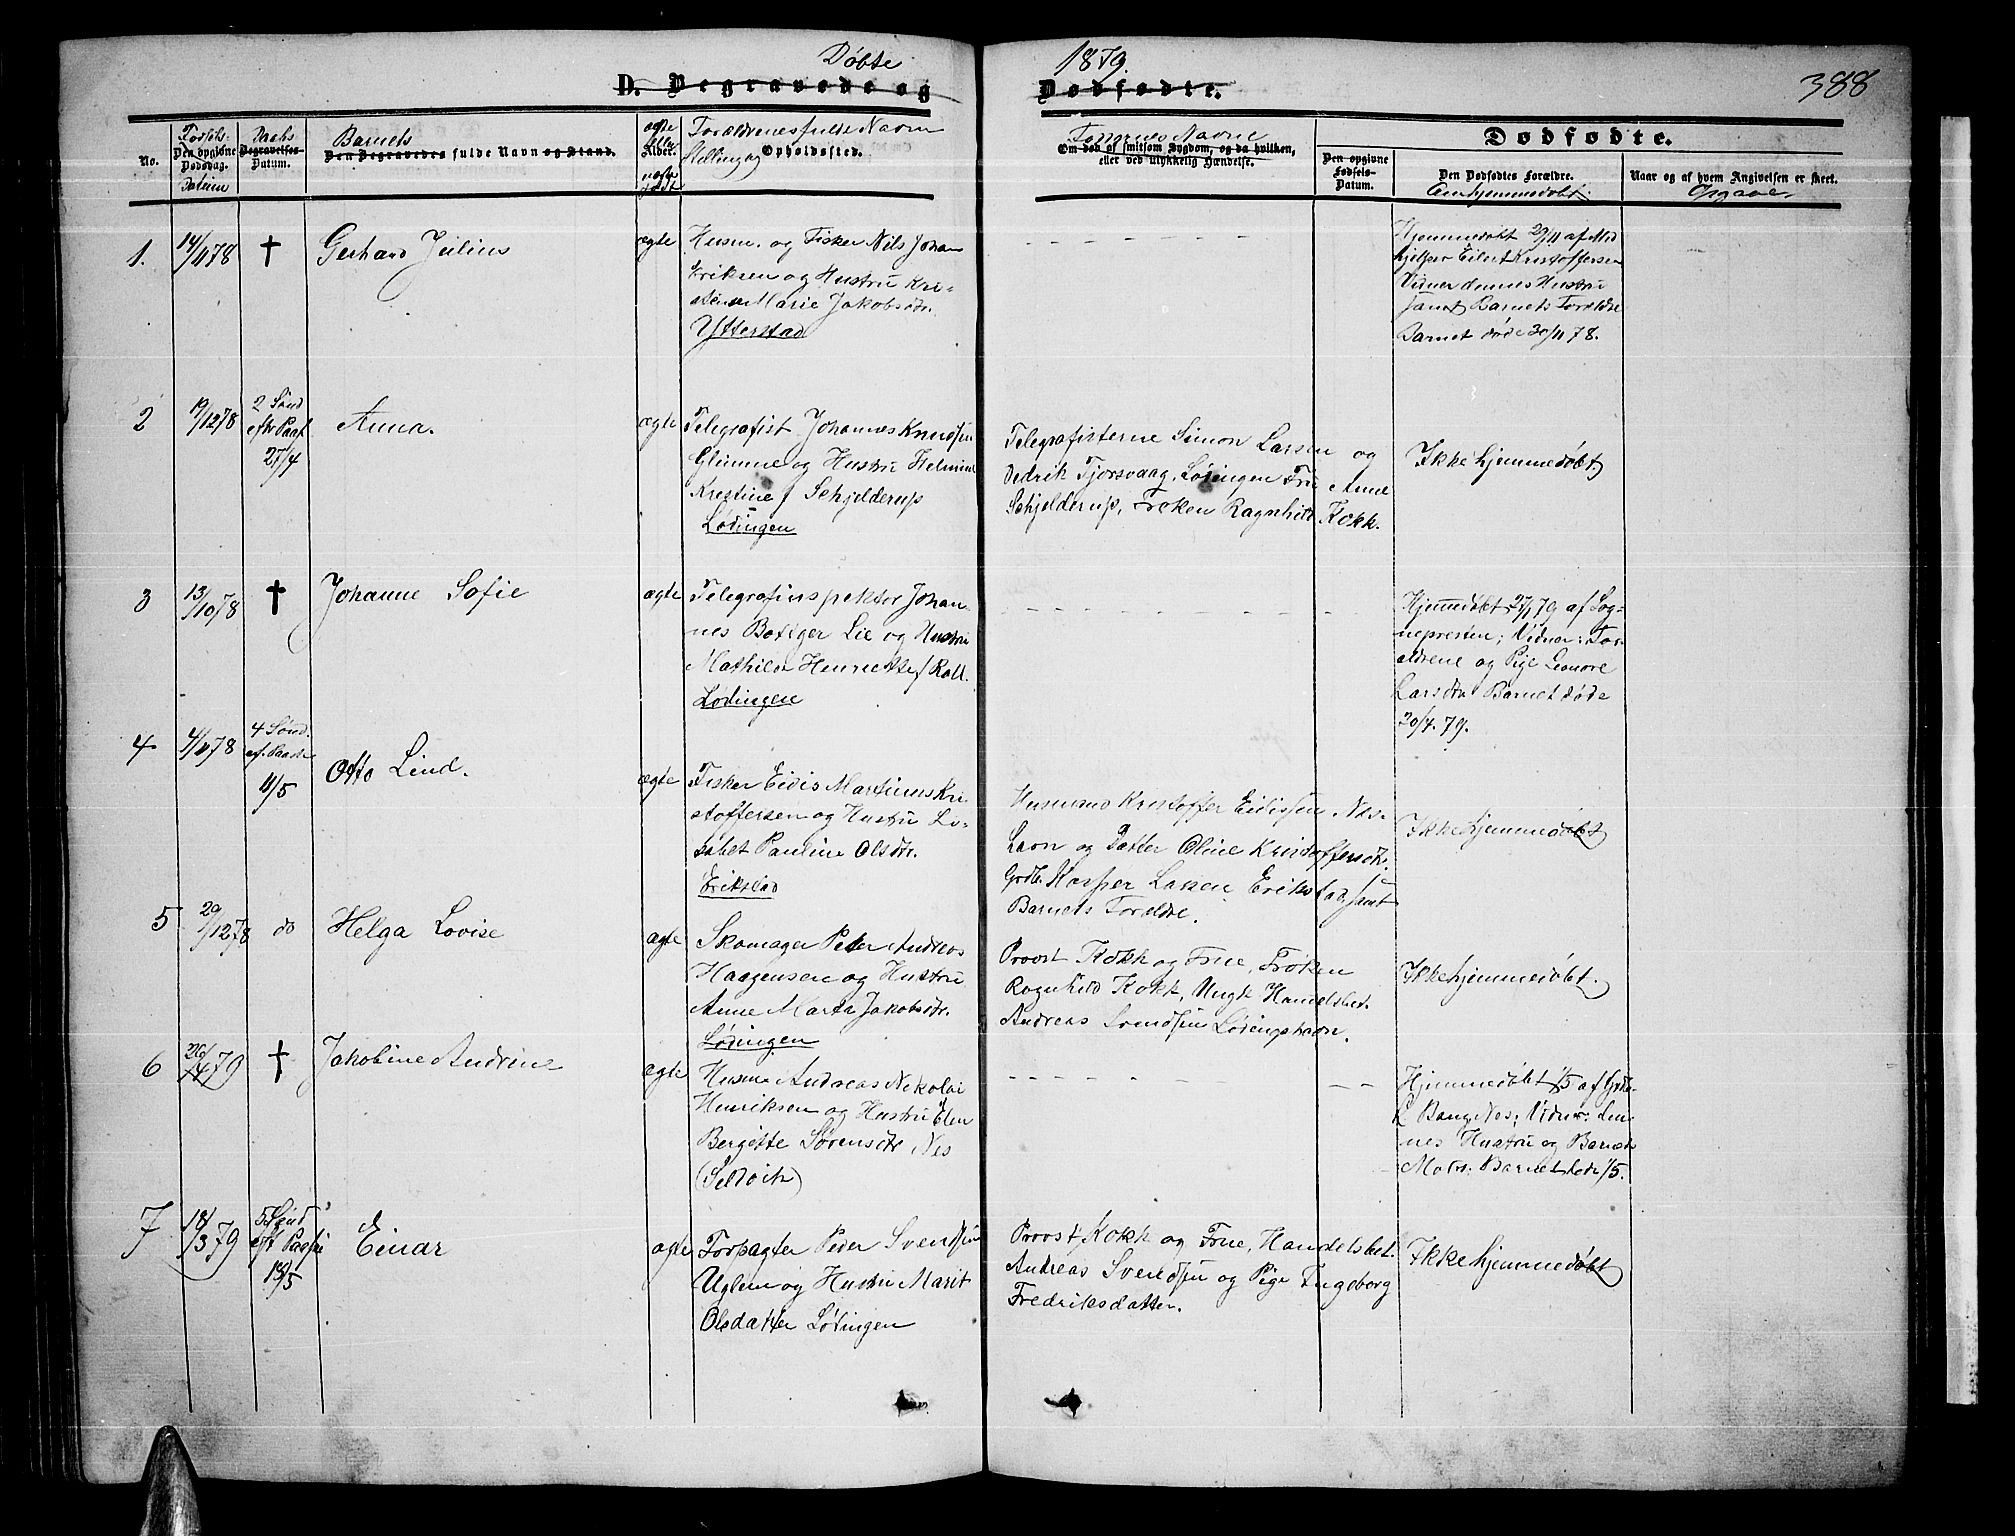 Døbte
1879.
388
D. Begravede og
Dødfødte.
No.
Fødsels-
Den opgivne
Dødsdag.
Datum
Daabs
Begravelses-
Datum.
Barnets
Den Begravedes fulde Navn og Stand.
ægte
Alder.
uægte
født
Forældrenes fulde Navn
Stilling og Opholdssted.
Faddernes Navne
Om død af smitsom Sygdom, og da hvilken,
eller ved ulykkelig Hændelse.
Dødfødte.
Den opgivne
Fødsels-
Datum.
Den Dødfødtes Forældre.
Om hjemmedøbt
Naar og af hvem Angivelsen er skeet.
Opgave
1.
14/11 78
†
Gerhard Julius
ægte
Husm. og Fisker Nils Johan
Eriksen og Hustru Kri-
stense Marie Jakobsdr.
Ytterstad
Hjemmedøbt 29/11 af Med
hjelper Eilert Kristoffersen
Vidner dennes Hustru
samt Barnets Forældre
Barnet døde 30/11 78.
2
19/12 78
2 Sønd
efter Paas
27/4
Anna.
ægte
Telegrafist Johannes Knudsen
Glimme og Hustru Helmine
Kristine f Schjelderup
Lødingen
Telegrafisterne Simon Larsen og
Dedrik Tjorsvaag, Lødingen Fru Anne
Schjelderup, Frøken Ragnhild Kokk.
Ikke hjemmedøbt
3
13/10 78
†
Johanne Sofie
ægte
Telegrafinspektør Johan-
nes Bøtiger Lie og Hustru
Mathilde Henriette f Roll.
Lødingen
Hjemmedøbt 27/1 79 af Sog-
nepresten; Vidner: For-
ældrene og Pige Leonore
Larsdtr Barnet døde
20/4. 79.
4
4/11 78
4 Sønd.
ef. Paaske
11/5
Otto Lind.
ægte
Fisker Eidis Martinus Kri
stoffersen og Hustru Li-
sabet Pauline Olsdr.
Erikstad
Husmand Kristoffer Eidissen Nes-
havn og Datter Oline Kristoffersdtr.
Grdb. Kasper Lassen Erikstad samt
Barnets Forældre.
Ikke hjemmedøbt
5
29/12 78
do
Helga Lovise
ægte
Skomager Peder Andreas
Haagensen og Hustru
Anne Marta Jakobsdr.
Lødingen
Provst Kokk og Frue, Frøken
Ragnhild Kokk, Ungk Handelsbet.
Andreas Svendsen Lødingshavn.
Ikke hjemmedøbt.
6
26/4 79
†
Jakobine Andrine
ægte
Husm. Andreas Nikolai
Henriksen og Hustru Elen
Bergitte Sørensdr Nes
(Selvoik)
Hjemmedøbt 1/5 af Grdb.
L Bang Nes; Vidner: Den-
nes Hustru og Barnets
Moder. Barnet døde 1/5.
7
18/3 79
5 Sønd
eft Paaske
18/5
Einar
ægte
Forpagter Peder Svendsen
Uglem og Hustru Marit
Olsdatter Lødingen
Provst Kokk og Frue, Handelsbet.
Andreas Svendsen og Pige Ingeborg
Fredriksdatter.
Ikke hjemmedøbt